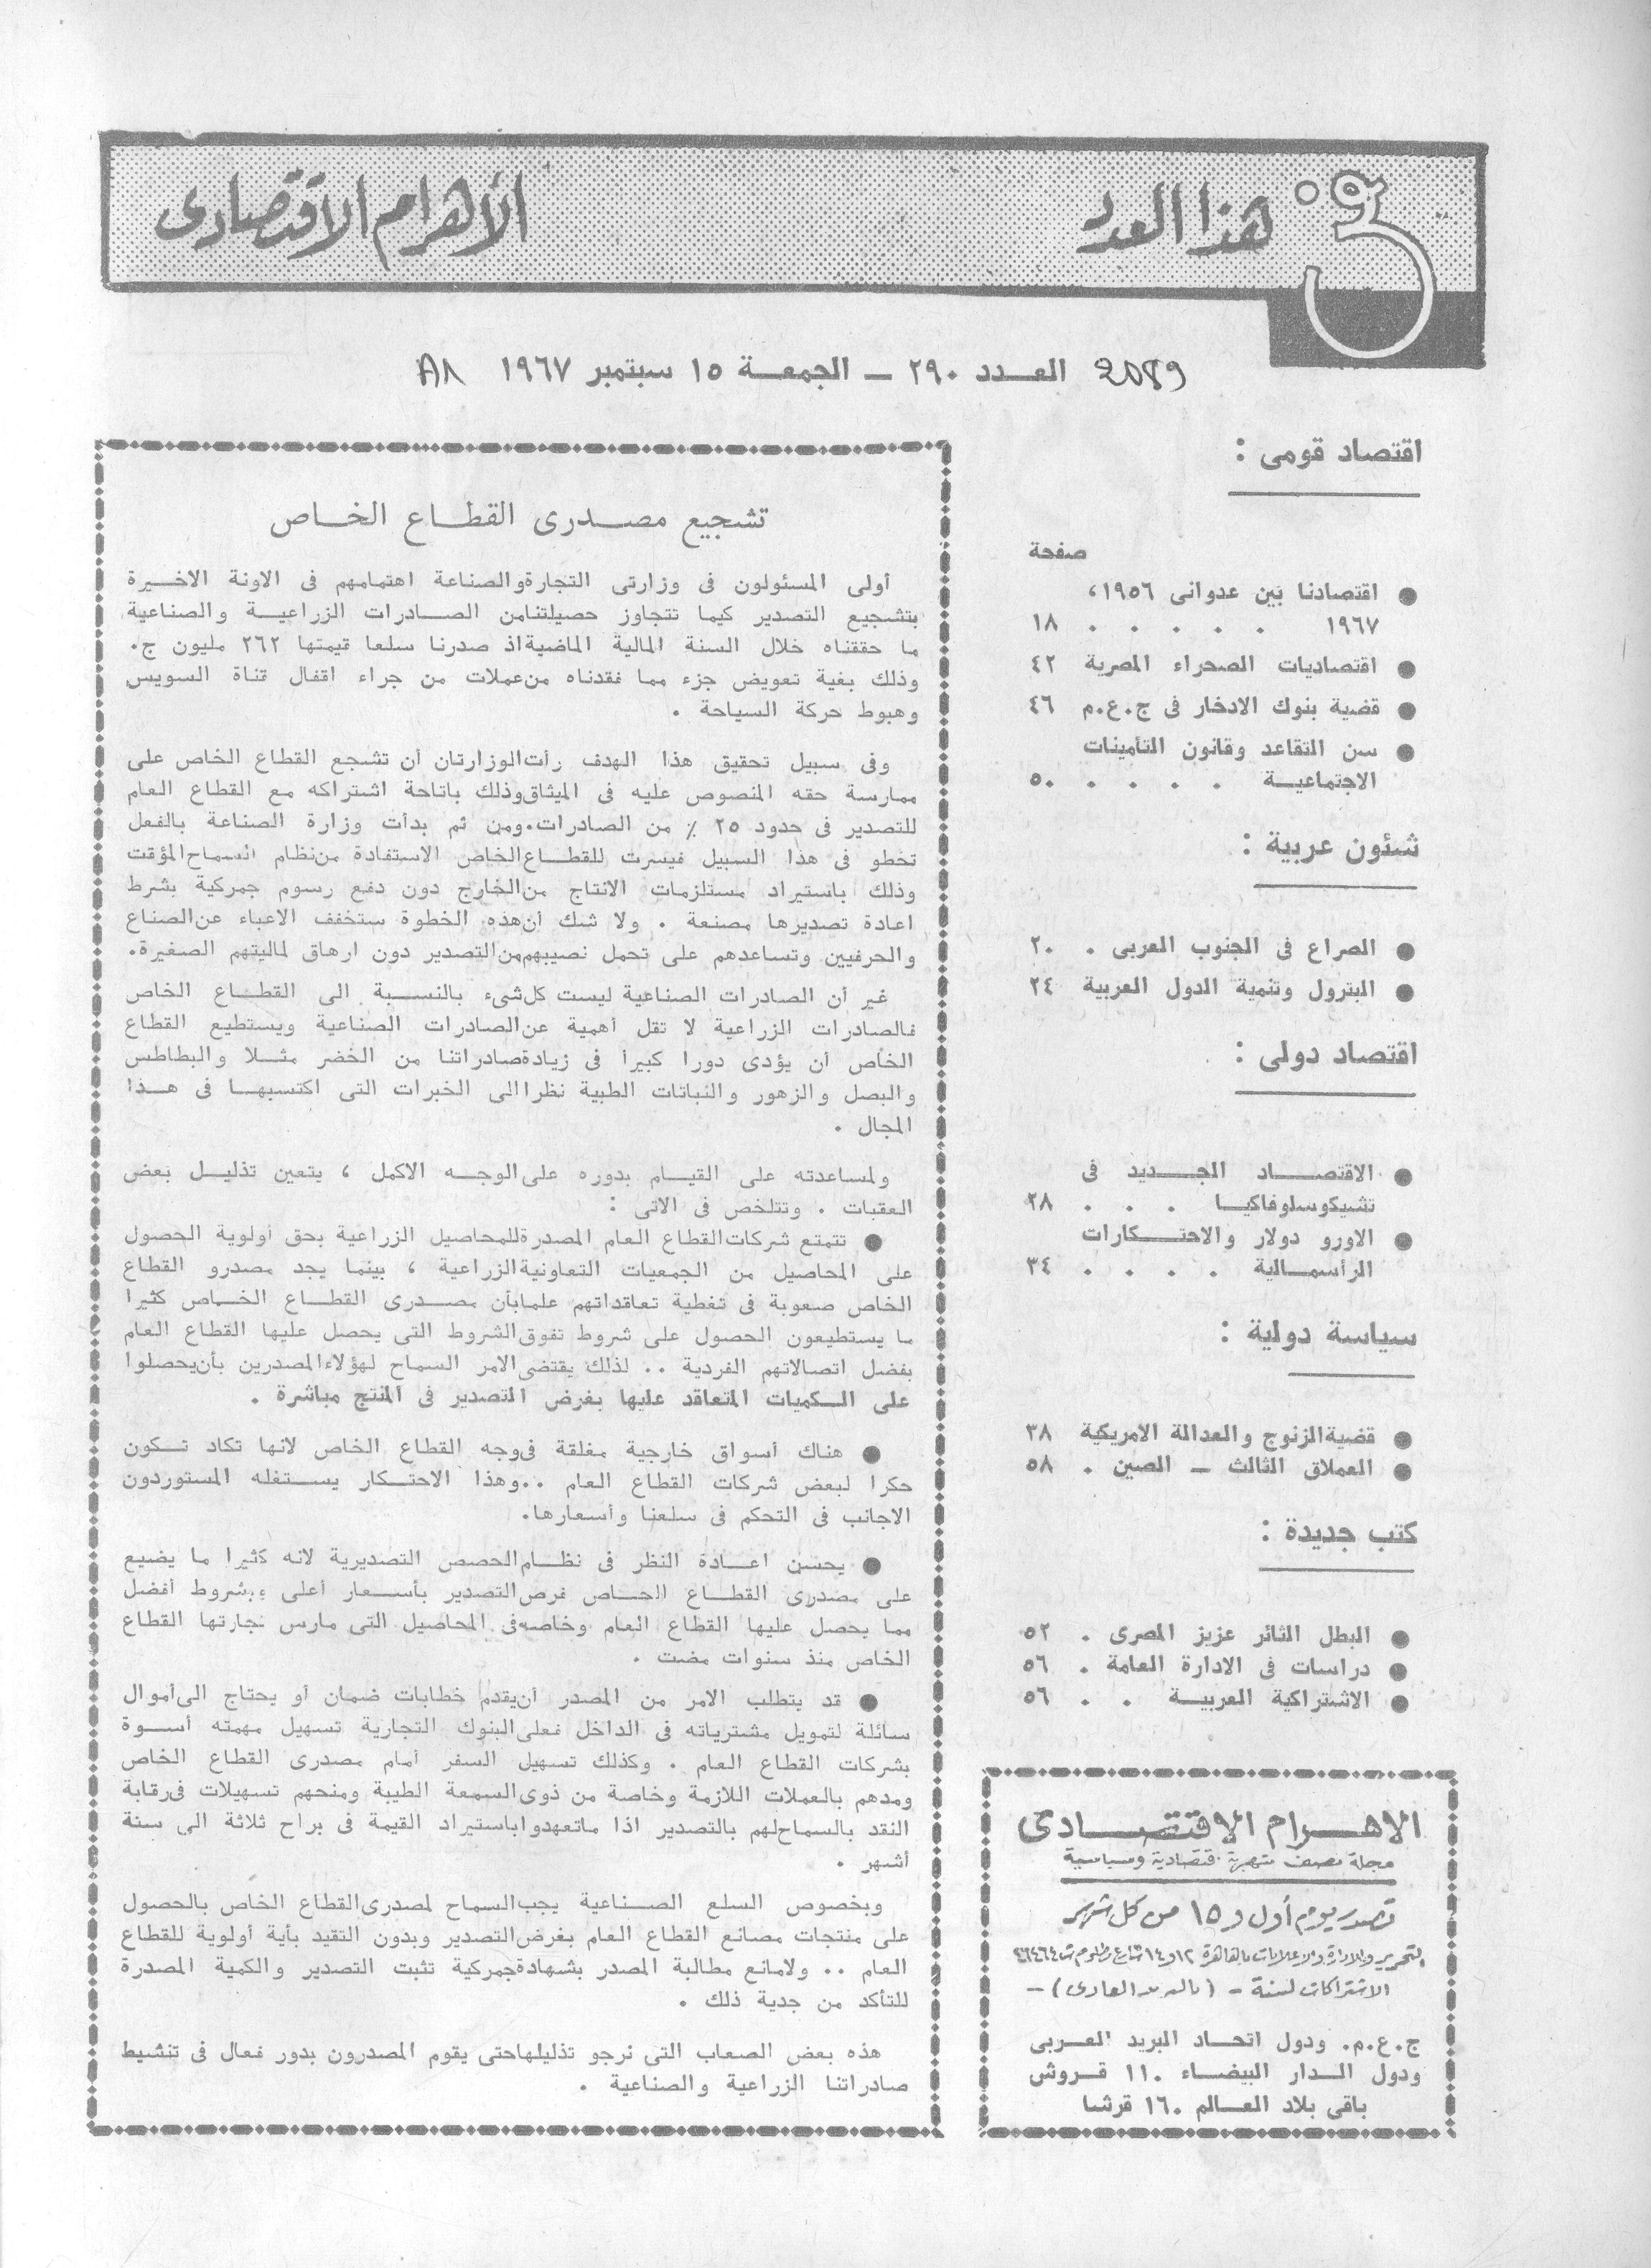 فى هذا العدد
الأهرام الاقتصادى
2089 العـــدد ٢٩٠ ـ الجمعـــة ١٥ سبتمبر ١٩٦٧
اقتصاد قومى :
صفحة
● اقتصادنا بين عدوانى ١٩٥٦،
١٩٦٧ . . . . . ١٨
● اقتصاديات الصحراء المصرية ٤٢
● قضية بنوك الادخار فى ج.ع.م ٤٦
● سن التقاعد وقانون التأمينات
الاجتماعيـــة . . . . ٥٠
شئون عربية :
● الصراع فى الجنوب العربى . ٢٠
● البترول وتنمية الدول العربية ٢٤
اقتصاد دولى :
● الاقتصـــاد الجـــديد فى
تشيكوسلوفاكيـا . . . ٢٨
● الاورو دولار والاحتــكارات
الرأسمـــالية . . . . ٣٤
سياسة دولية :
● قضية الزنوج والعدالة الامريكية ٣٨
● العملاق الثالث ـ الصين . ٥٨
كتب جديدة :
● البطل الثائر عزيز المصرى . ٥٢
● دراسات فى الادارة العامة . ٥٦
● الاشتراكية العربيـــة . . ٥٦
الاهـــرام الاقتصـــادى
مجلة نصف شهرية اقتصادية وسياسية
تصدر يوم أول و ١٥ من كل شهر
التحرير والادارة والاعلانات بالقاهرة ١٢ و ١٤ شارع مظلوم ت ٤٦٤٦٤
الاشتراكات لسنة - (بالبريد العادى) -
ج.ع.م. ودول اتحـــاد البريد العـــربى
ودول الـــدار البيضـــاء ١١٠ قـــروش
باقى بلاد العـــالم ١٦٠ قرشا
تشجيع مصـــدرى القطـــاع الخـــاص
أولى المسئولون فى وزارتى التجارة والصناعة اهتمامهم فى الاونة الاخـيرة
بتشجيع التصدير كيما تتجاوز حصيلتنا من الصـــادرات الزراعيـــة والصناعية
ما حققناه خلال السنة المالية الماضية اذ صدرنا سلعا قيمتها ٢٦٢ مليون ج.
وذلك بغية تعويض جزء مما فقدناه من عملات من جراء اقفال قناة السويس
وهبوط حركة السياحة .
وفى سبيل تحقيق هذا الهدف رأت الوزارتان أن تشجع القطاع الخاص على
ممارسة حقه المنصوص عليه فى الميثاق وذلك باتاحة اشتراكه مع القطاع العام
للتصدير فى حدود ٢٥ ٪ من الصادرات. ومن ثم بدأت وزارة الصناعة بالفعل
تخطو فى هذا السبيل فيسرت للقطـــاع الخاص الاستفادة من نظام السماح المؤقت
وذلك باستيراد مستلزمات الانتاج من الخارج دون دفع رسوم جمركية بشرط
اعادة تصديرها مصنعة . ولا شك أن هذه الخطوة ستخفف الاعباء عن الصناع
والحرفيين وتساعدهم على تحمل نصيبهم من التصدير دون ارهاق لماليتهم الصغيرة.
غير أن الصادرات الصناعية ليست كل شىء بالنســـبة الى القطـــاع الخاص
فالصادرات الزراعية لا تقل أهمية عن الصادرات الصناعية ويستطيع القطاع
الخاص أن يؤدى دورا كبيرا فى زيادة صادراتنا من الخضر مثـــلا والبطاطس
والبصل والزهور والنباتات الطبية نظرا الى الخبرات التى اكتسبهـــا فى هـــذا
المجال .
ولمساعدته على القيـــام بدوره على الوجـــه الاكمل ، يتعين تذليـــل بعض
العقبات . وتتلخص فى الاتى :
● تتمتع شركات القطاع العام المصدرة للمحاصيل الزراعية بحق أولوية الحصول
على المحاصيل من الجمعيات التعاونية الزراعية ، بينما يجد مصدرو القطاع
الخاص صعوبة فى تغطية تعاقداتهم علما بأن مصـــدرى القطـــاع الخـــاص كثيرا
ما يستطيعون الحصول على شروط تفوق الشروط التى يحصل عليها القطاع العام
بفضل اتصالاتهم الفردية .. لذلك يقتضى الامر السماح لهؤلاء المصدرين بأن يحصلوا
على الـــكميات المتعاقد عليها بغرض التصدير فى المنتج مباشرة .
● هناك أسواق خارجية مغلقة فى وجه القطاع الخاص لانها تكاد تـــكون
حكرا لبعض شركات القطاع العام .. وهذا الاحتـــكار يســـتغله المستوردون
الاجانب فى التحكم فى سلعنا وأسعارها.
● يحسن اعـــادة النظر فى نظـــام الحصص التصديرية لانه كثيرا ما يضيع
على مصدرى القطـــاع الخـــاص فرص التصدير بأســـعار أعلى وبشروط أفضل
مما يحصل عليها القطاع العام وخاصة فى المحاصيل التى مارس تجارتها القطاع
الخاص منذ سنوات مضت .
● قد يتطلب الامر من المصدر أن يقدم خطابات ضمان أو يحتاج الى أموال
سائلة لتمويل مشترياته فى الداخل فعلى البنوك التجارية تسهيل مهمته أســـوة
بشركات القطاع العام . وكذلك تسهيل السفر أمام مصدرى القطاع الخاص
ومدهم بالعملات اللازمة وخاصة من ذوى السمعة الطيبة ومنحهم تسهيلات فى رقابة
النقد بالسماح لهم بالتصدير اذا ما تعهدوا باستيراد القيمة فى براح ثلاثة الى ستة
أشهر .
وبخصوص السلع الصـــناعية يجب السماح لمصدرى القطاع الخاص بالحصول
على منتجات مصانع القطاع العام بغرض التصدير وبدون التقيد بأية أولوية للقطاع
العام .. ولا مانع مطالبة المصدر بشهادة جمركية تثبت التصدير والكمية المصدرة
للتأكد من جدية ذلك .
هذه بعض الصعاب التى نرجو تذليلها حتى يقوم المصدرون بدور فعال فى تنشيط
صادراتنا الزراعية والصناعية .